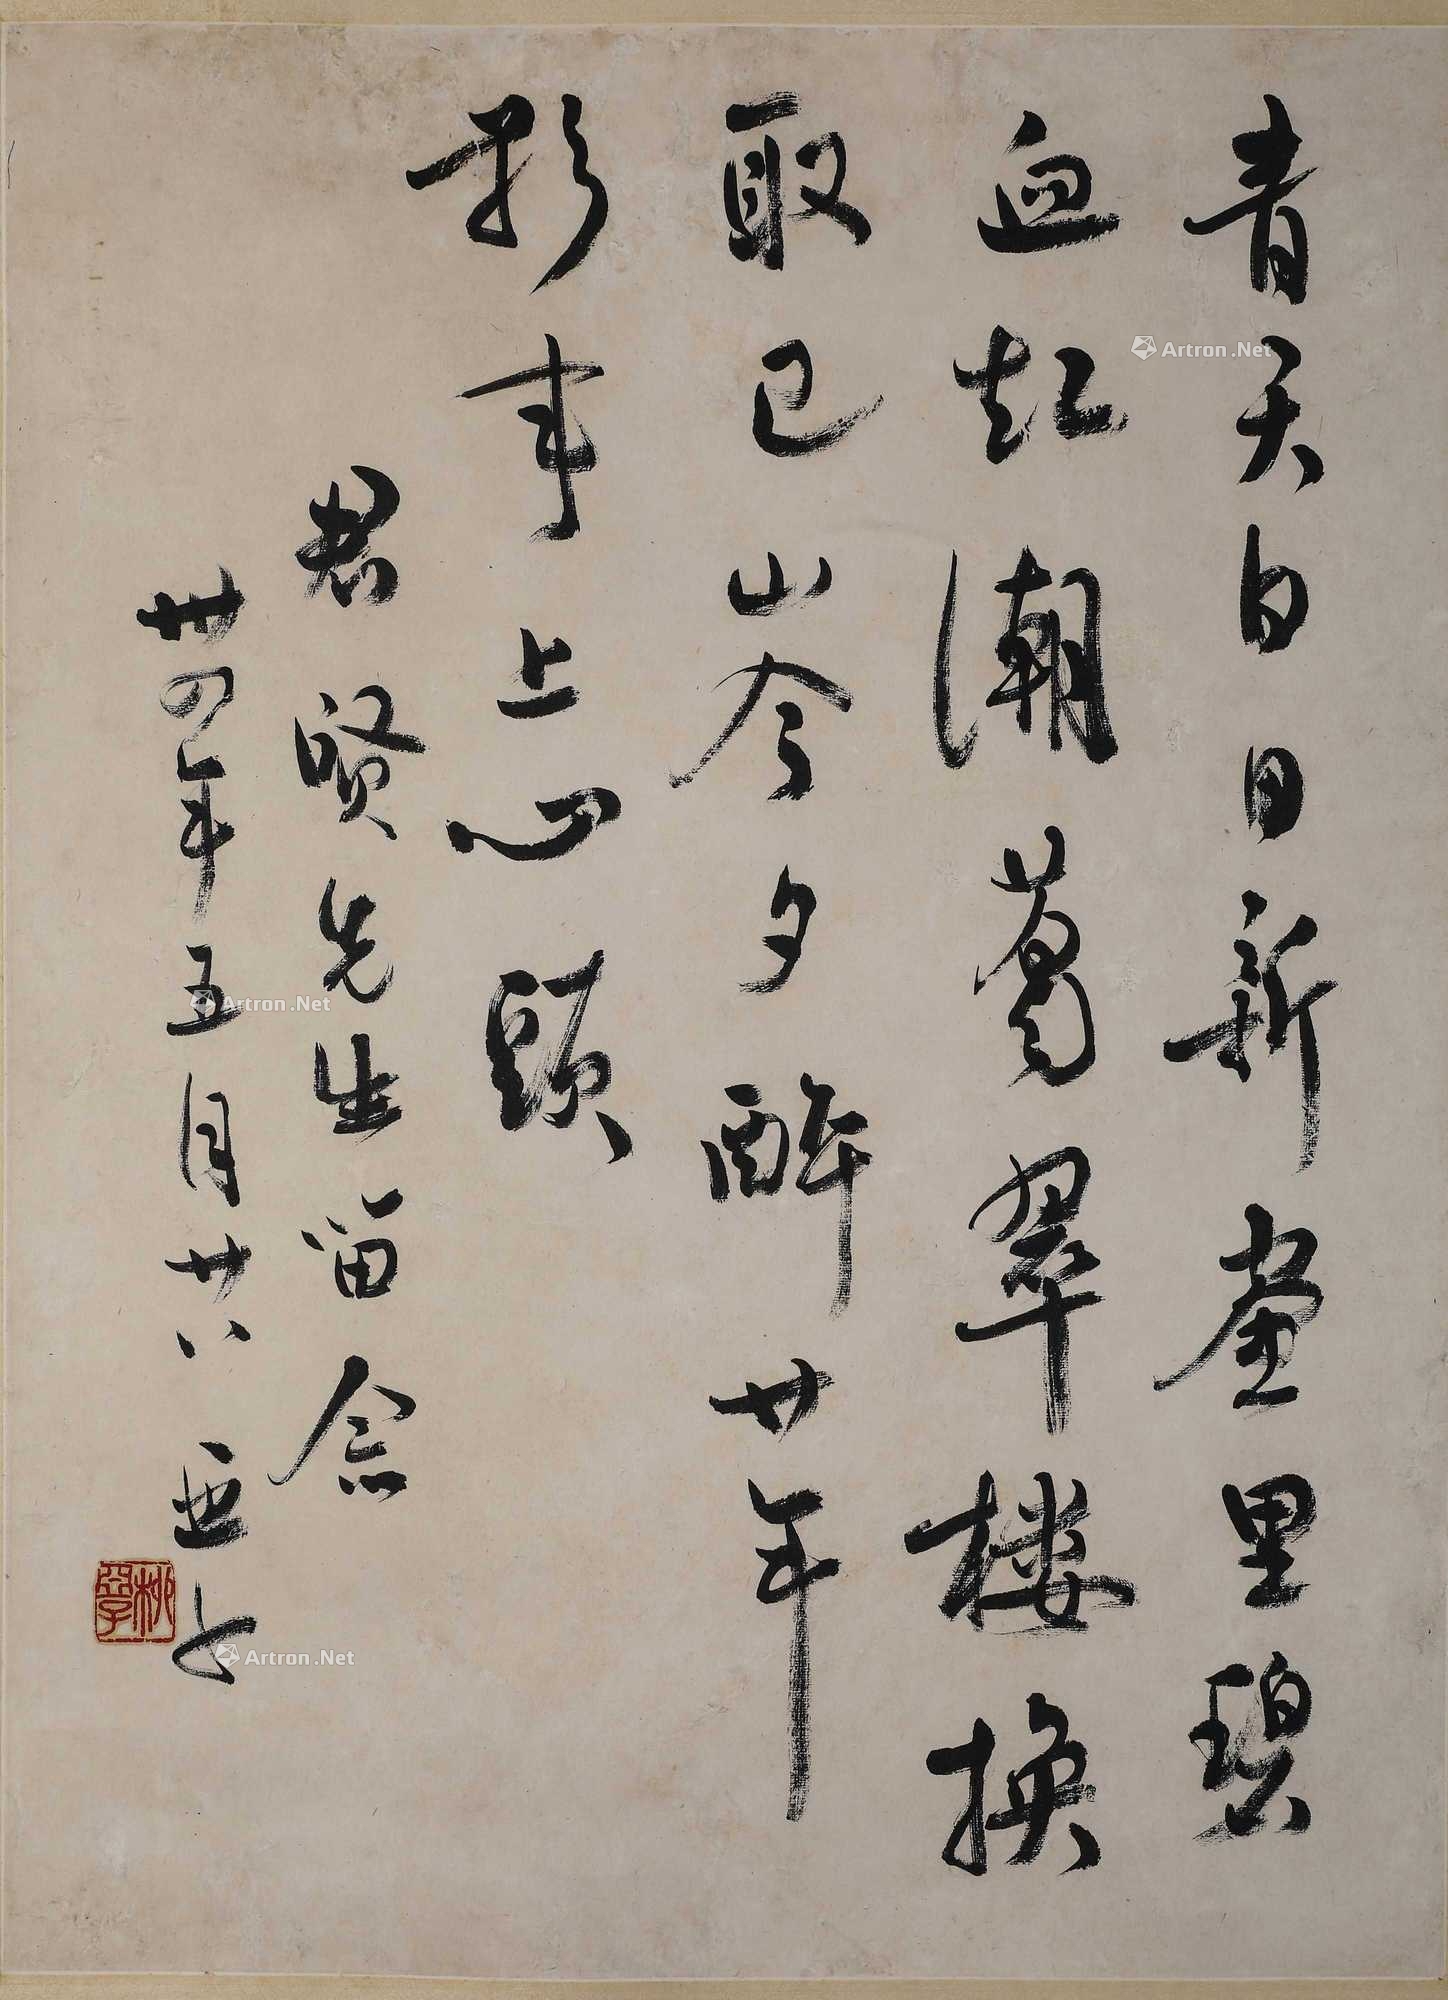 青天白日新堂里碧
血紅潮葛翠樓換
取巴山今夕醉廿年
影事上心頭
君賢先生留念
卅四年五月廿八 亞子
Artron.Net
Artron.Net
Artron.Net